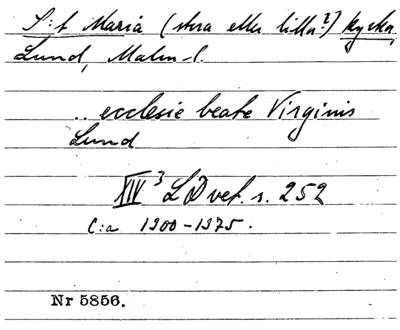 S:t Maria (stora eller lilla?) kyrka,
Lund, Malm-l.
.. ecclesie beate Virginis
Lund
XIV 3 LD vet. s. 252
C:a 1300-1375.
Nr 5856.